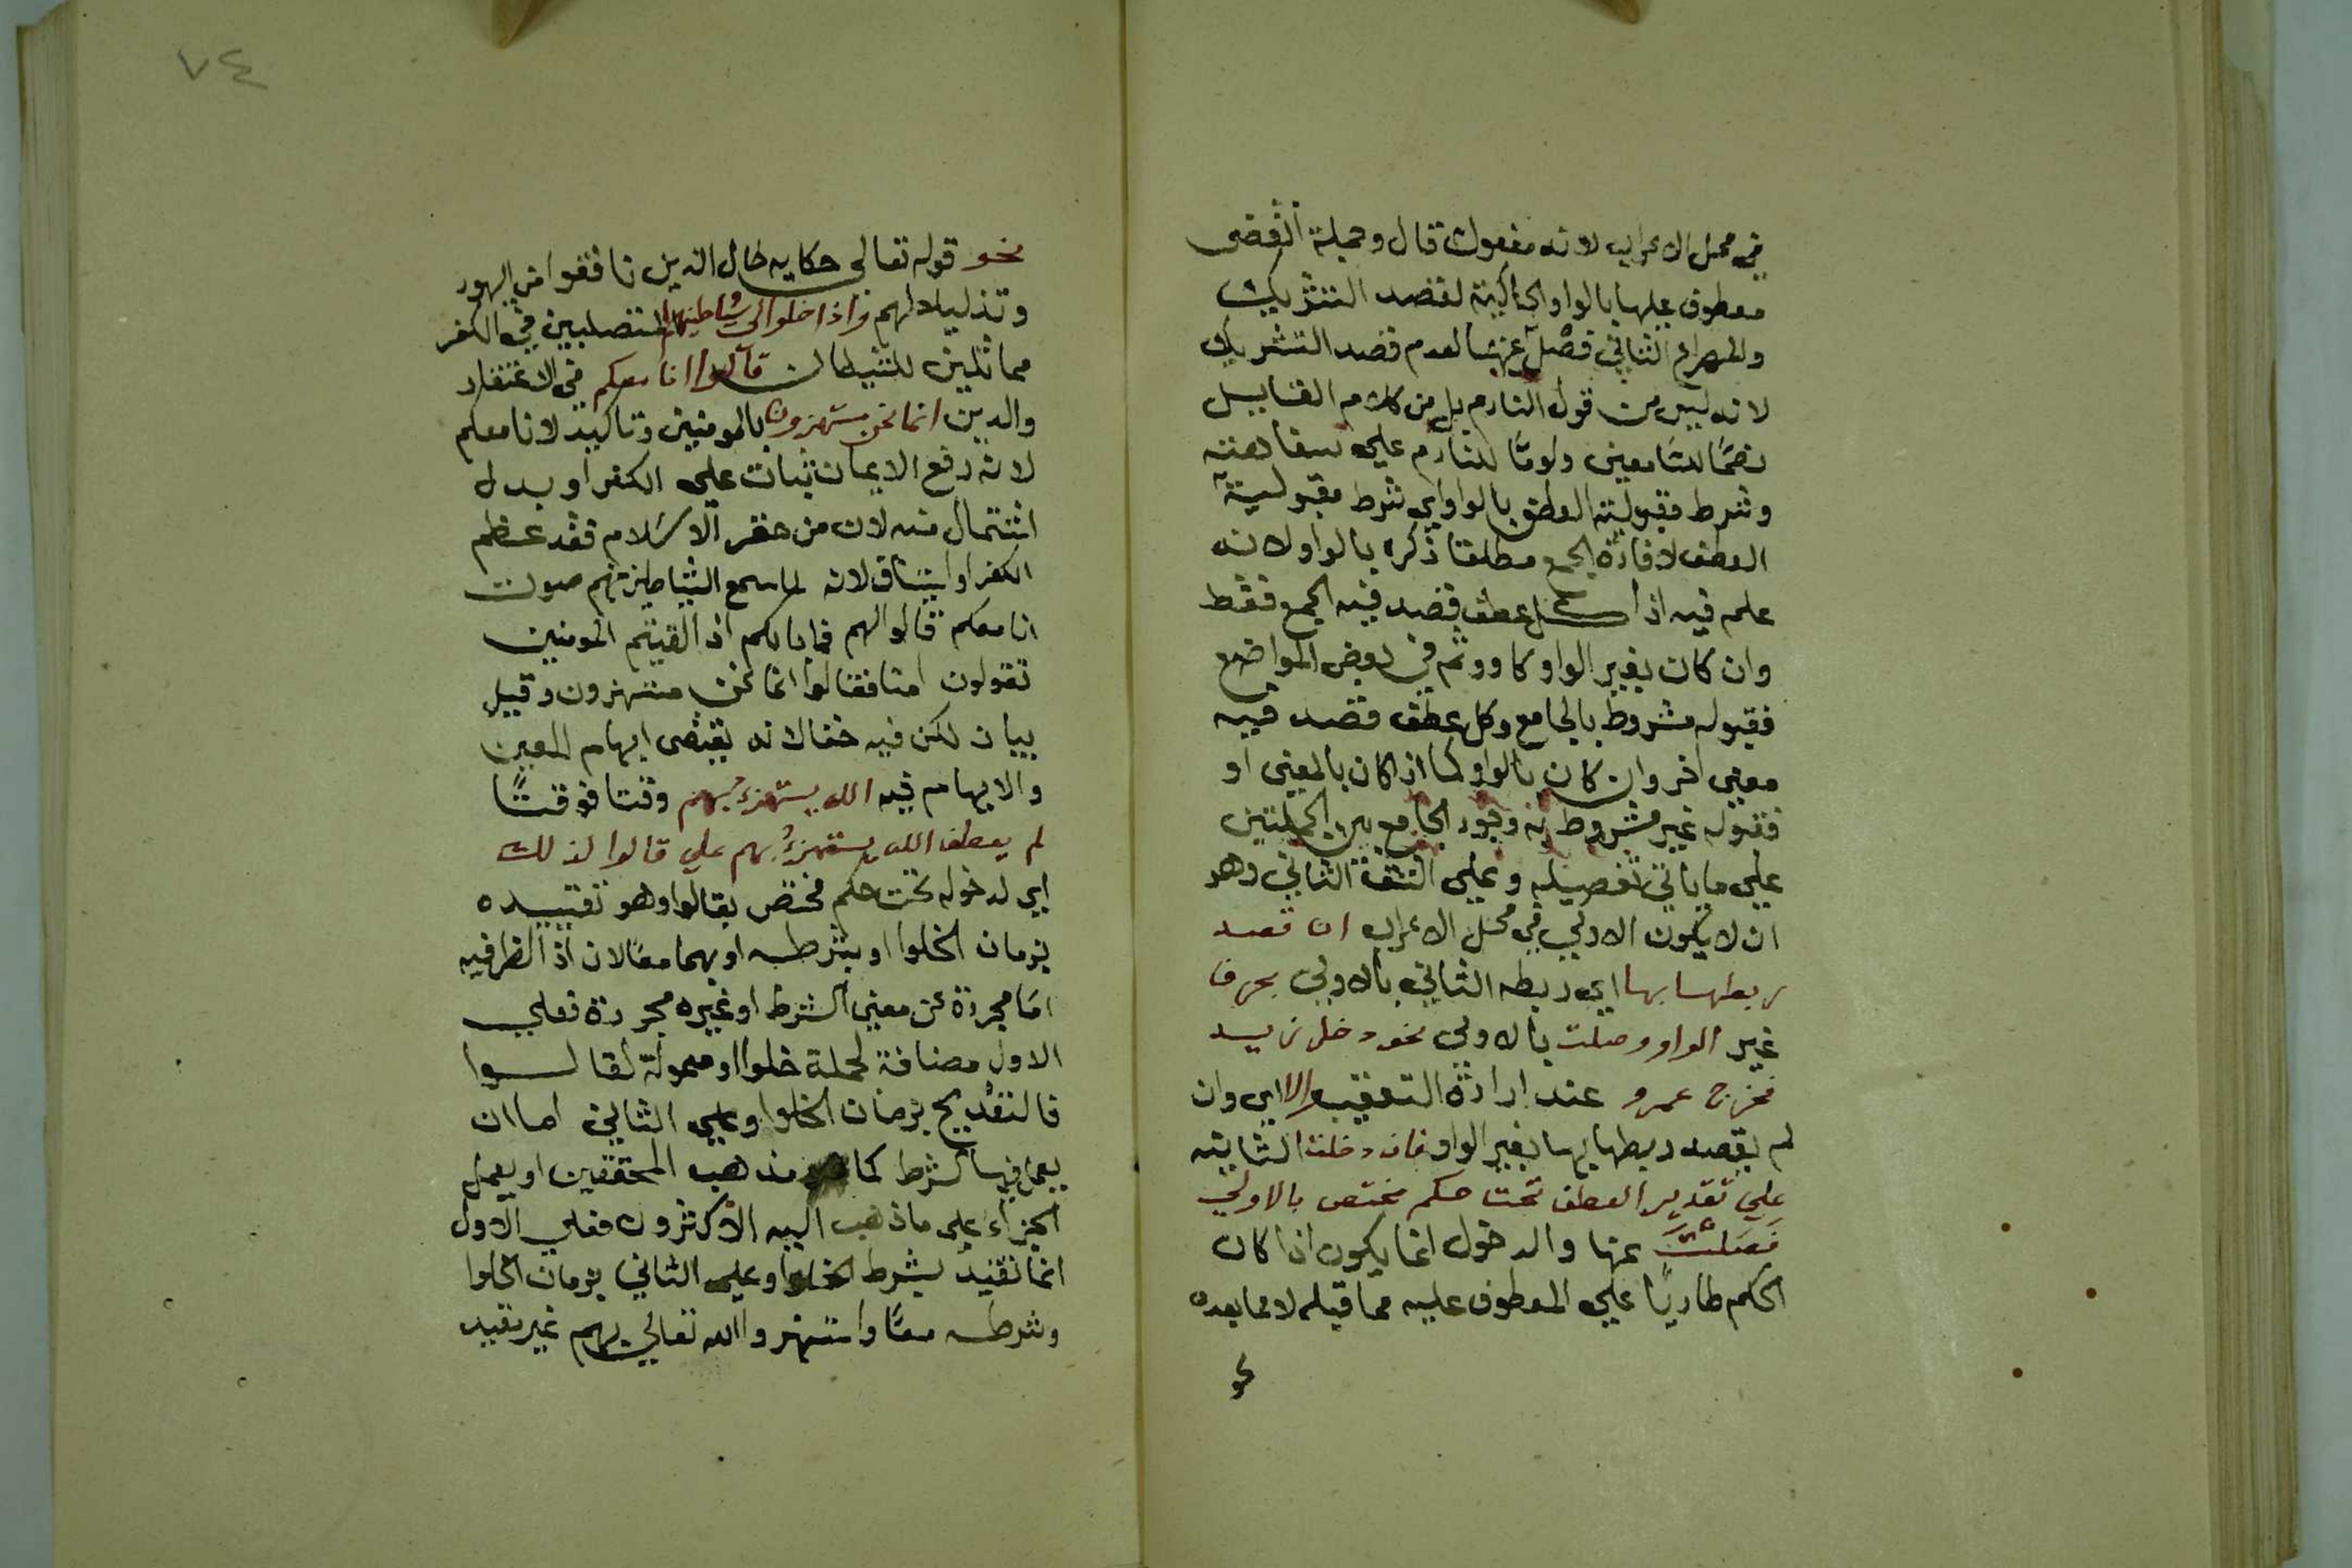 في محل الاعراب لانه مفعول قال وجملة انقضى
معطوف عليها بالواو الحاكية لقصد التشريك
والمصراع الثاني فصل عنهما لعدم قصد التشريك
لانه ليس من قول النادم بل من كلام القايل
نصحًا للسامعين ولومًا للنادم علي سفاهته
وشرط مقبولية العطف بالواو اي شرط مقبولية
العطف لافادة الجمع مطلقا ذكره بالواو لانه
علم فيه اذ كل عطف قصد فيه الجمع فقط
وان كان بغير الواو كاو وثم في بعض المواضع
فقبوله مشروط بالجامع وكل عطف قصد فيه
معني اخر وان كان بالواو كما اذا كان بالمعني او
فقبوله غير مشروط به وجود الجامع بين الجملتين
علي ما ياتي تفصيله وعلي الشق الثاني وهو
ان لا يكون الاولي في محل الاعراب ان قصد
ربطها بها اي ربط الثاني بالاولي بحرف
غير الواو وصلت بالاولي نحو دخل زيد
فخرج عمرو عند ارادة التعقيب والا اي وان
لم يقصد ربطها بها بغير الواو فان دخلت الثانية
علي تقدير العطف تحت حكم مختص بالاولي
فصلت عنها والدخول انما يكون اذا كان
الحكم طاريًا علي المعطوف عليه مما قبله لا مما بعده
نحو
٧٤
نحو قوله تعالي حكاية حال الذين نافقوا من اليهود
وتذليلا لهم واذا خلوا الي شياطينهم المتصلبين في الكفر
مماثلين للشيطان قالوا انا معكم في الاعتقاد
والدين انما نحن مستهزون بالمومنين وتاكيد لانا معكم
لانه رفع الايمان ثبات علي الكفر او بدل
اشتمال منه لان من حقر الاسلام فقد عظم
الكفر او استيناف لانه لما سمع الشياطين منهم صوت
انا معكم قالوا لهم فما بالكم اذا لقيتم المومنين
تقولون امنا فقالوا انما نحن مستهزون وقيل
بيان لكن فيه خفا لانه يقتضي ابهام المعين
والابهام فيه الله يستهزئ بهم وقتا فوقتًا
لم يعطف الله يستهزئ بهم علي قالوا لذلك
اي لدخوله تحت حكم مختص بقالوا وهو تقييده
بزمان الخلوا او بشرطه او بهما معًا لان اذا الظرفيه
اما مجردة عن معني الشرط او غيره مجردة فعلي
الاول مضافة لجملة خلوا او معمولة لقالوا
فالتقديم بزمان الخلوا وعلي الثاني اما ان
يعمل فيها الشرط كما هو مذهب المحققين او يعمل
الجزاء علي ما ذهب اليه الاكثرون فعلي الاول
انما تقيد بشرط الخلوا وعلي الثاني بزمان الخلوا
وشرطه معًا واستهزوا الله تعالي بهم غير تقيد